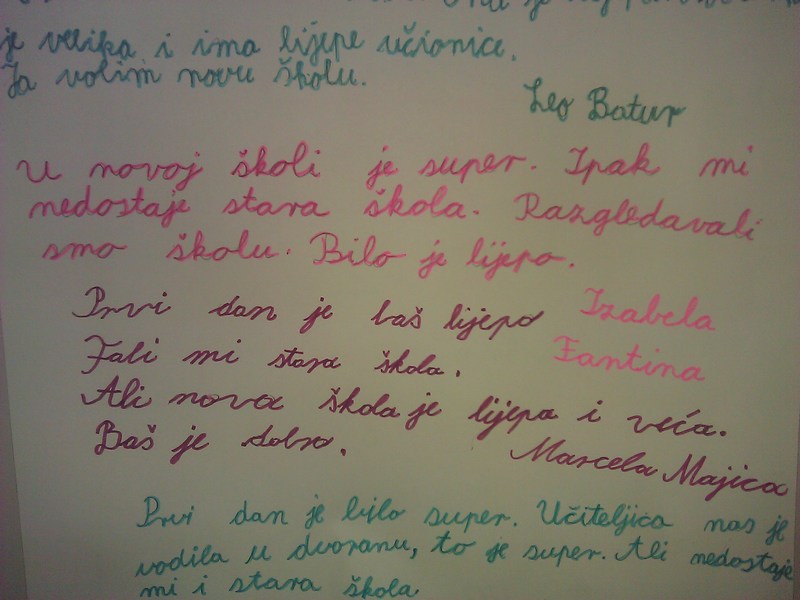 je velika i ima lijepe učionice.
Ja volim novu školu.
Leo Batur
U novoj školi je super. Ipak mi
nedostaje stara škola. Razgledavali
smo školu. Bilo je lijepo.
Izabela
Fantina
Prvi dan je baš lijepo
Fali mi stara škola.
Ali nova škola je lijepa i veća.
Baš je dobro.
Marcela Majica
Prvi dan je bilo super. Učiteljica nas je
vodila u dvoranu, to je super. Ali nedostaje
mi i stara škola